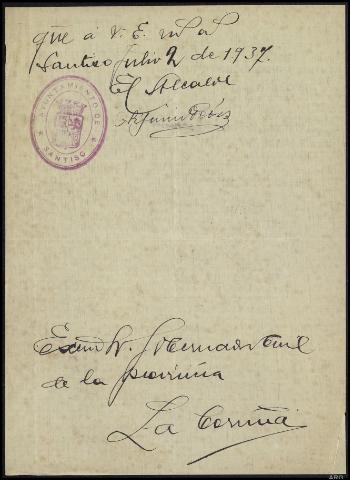 que á V. E. m. a.
Santiso Julio 2 de 1937.
El Alcalde
AYUNTAMIENTO DE
SANTISO
Exmo Sr. Gobernador Civil
de la provincia
La Coruña
ARG